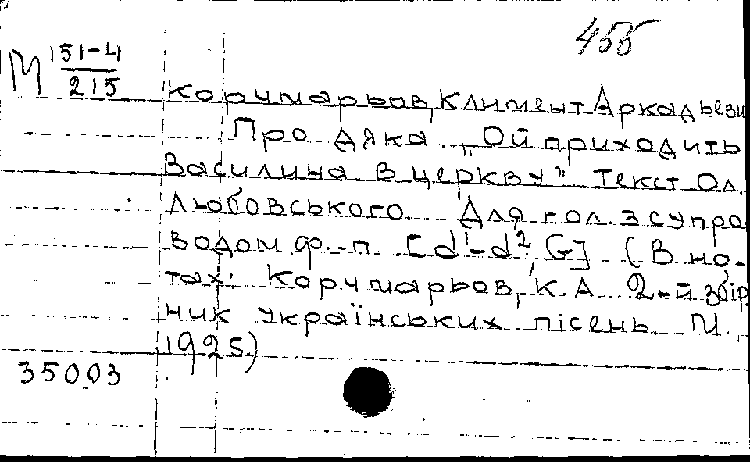 455
М 51-4
215
Корчмарьов, Климент Аркадьеви
Про дяка. „Ой приходить
Василина в церкву" Текст Ол.
Любовського. Для гол. з супро
водом ф.-п. [d¹-d², G] (В но-
тах: Корчмарьов, К. А. 2-й збір
ник українських пісень М.,
1925)
35003